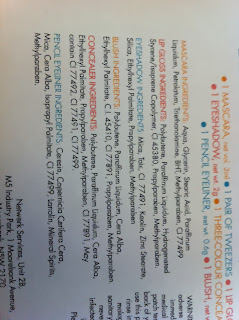 • 1 MASCARA, net. 2ml • 1 PAIR OF TWEEZERS • 1 LIP GL
• 1 EYESHADOW, net. 2g • 1 THREE-COLOUR CONCEALE
• 1 PENCIL EYELINER, net. 0.6g • 1 BLUSH, net.
MASCARA INGREDIENTS: Aqua, Glycerin, Stearic Acid, Paraffinum
Liquidum, Petrolatum, Triethanolamine, BHT, Methylparaben, CI 77499
LIP GLOSS INGREDIENTS: Polybutene, Paraffinum Liquidum, Hydrogenated
Styrene/Isoprene Copolymer, CI 45380, Propylparaben, Methylparaben
EYESHADOW INGREDIENTS: Mica, Talc, CI 77491, Kaolin, Zinc Stearate,
Silica, Ethylhexyl Palmitate, Propylparaben, Methylparaben
BLUSH INGREDIENTS: Polybutene, Paraffinum Liquidum, Cera Alba,
Ethylhexyl Palmitate, C.I. 45410, CI 77891, Propylparaben, Methylparaben
CONCEALER INGREDIENTS: Polybutene, Paraffinum Liquidum, Cera Alba,
Ethylhexyl Palmitate, Propylparaben, Methylparaben, CI 77891, May
contain CI 77492, CI 77491, CI 77499
PENCIL EYELINER INGREDIENTS: Ceresin, Copernicia Cerifera Cera,
Mica, Cera Alba, Isopropyl Palmitate, CI 77499, Lanolin, Mineral Spirits,
Methylparaben.
WARN
Network Services, Unit 2B,
M5 Industry Park, 1 Moorebank Avenue,
NSW 2170